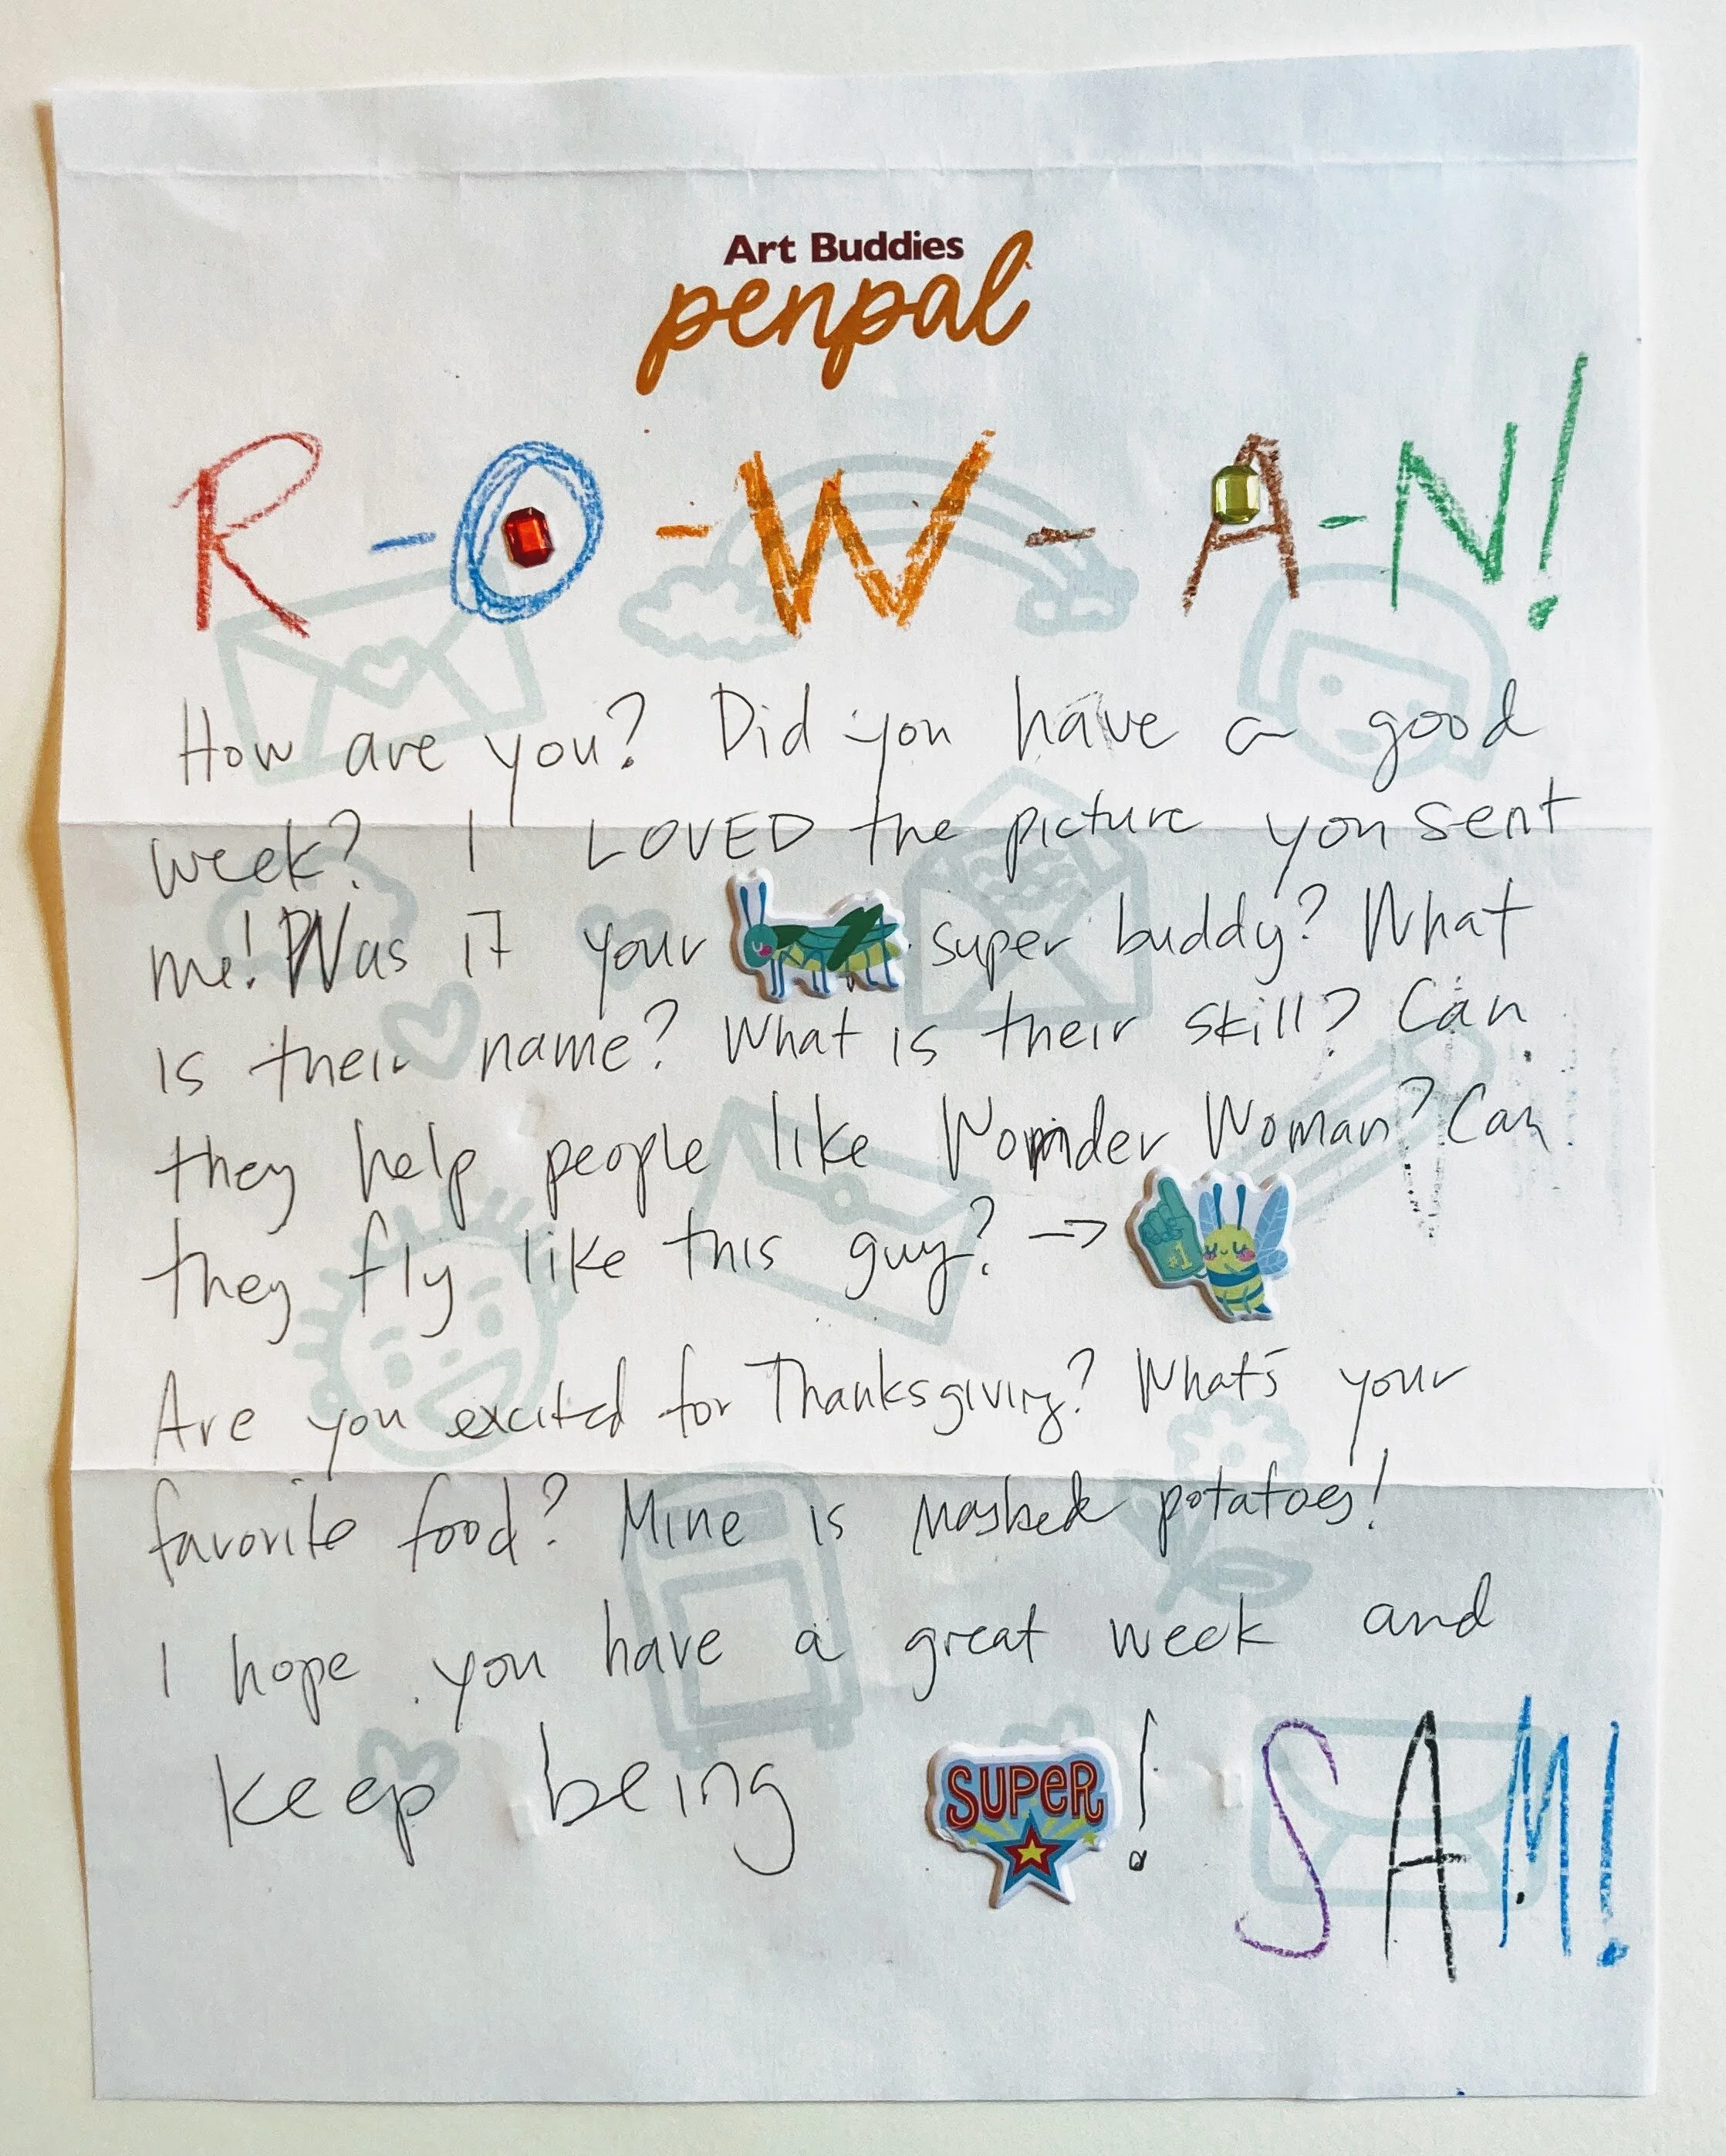 Art Buddies
penpal
R-O-W-A-N!
How are you? Did you have a good
week? I LOVED the picture you sent
me! Was it your super buddy? What
is their name? What is their skill? Can
they help people like Wonder Woman? Can
they fly like this guy? →
#1
Are you excited for Thanksgiving? What's your
favorite food? Mine is mashed potatoes!
I hope you have a great week and
keep being SUPER! SAM!